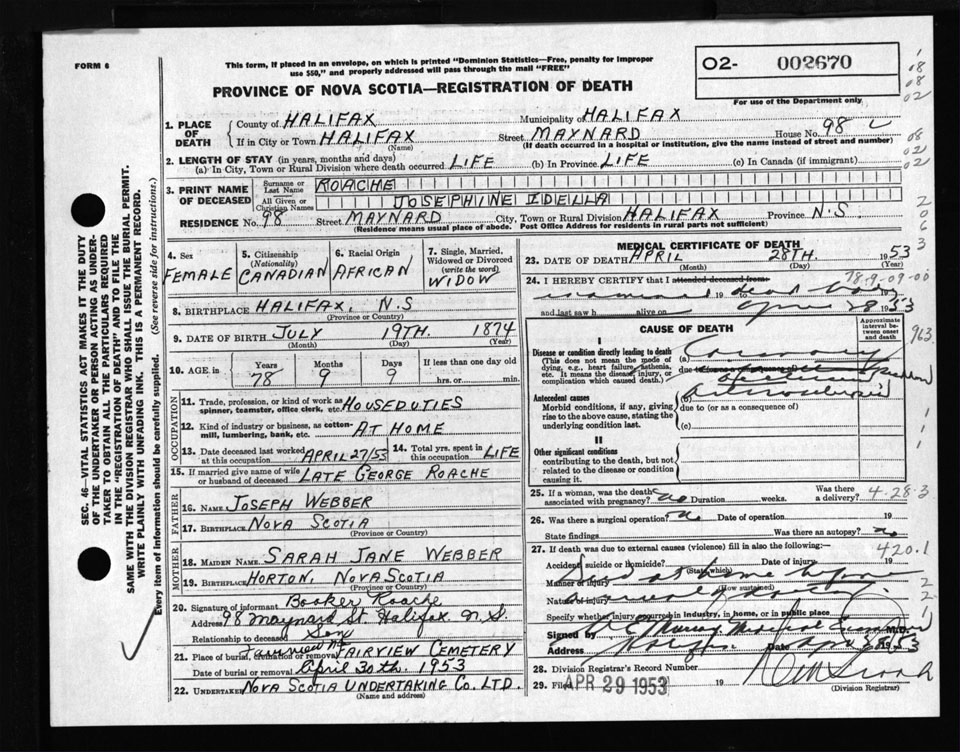 FORM 6
This form, if placed in an envelope, on which is printed "Dominion Statistics—Free, penalty for improper
use $50," and properly addressed will pass through the mail "FREE"
O2- 002670
For use of the Department only
PROVINCE OF NOVA SCOTIA—REGISTRATION OF DEATH
SEC. 46—VITAL STATISTICS ACT MAKES IT THE DUTY
OF THE UNDERTAKER OR PERSON ACTING AS UNDER-
TAKER TO OBTAIN ALL THE PARTICULARS REQUIRED
IN THE "REGISTRATION OF DEATH" AND TO FILE THE
SAME WITH THE DIVISION REGISTRAR WHO SHALL ISSUE THE BURIAL PERMIT.
WRITE PLAINLY WITH UNFADING INK. THIS IS A PERMANENT RECORD.
Every item of information should be carefully supplied. (See reverse side for instructions.)
1. PLACE OF DEATH
County of HALIFAX Municipality of HALIFAX
If in City or Town HALIFAX Street MAYNARD House No. 98
(Name) (If death occurred in a hospital or institution, give the name instead of street and number)
2. LENGTH OF STAY (in years, months and days)
(a) In City, Town or Rural Division where death occurred LIFE (b) In Province LIFE (c) In Canada (if immigrant)
3. PRINT NAME OF DECEASED
Surname or Last Name ROACHE
All Given or Christian Names JOSEPHINE IDELLA
RESIDENCE No. 98 Street MAYNARD City, Town or Rural Division HALIFAX Province N.S
(Residence means usual place of abode. Post Office Address for residents in rural parts not sufficient)
4. Sex FEMALE
5. Citizenship (Nationality) CANADIAN
6. Racial Origin AFRICAN
7. Single, Married, Widowed or Divorced (write the word) WIDOW
8. BIRTHPLACE HALIFAX, N.S
(Province or Country)
9. DATE OF BIRTH JULY 19TH. 1874
(Month) (Day) (Year)
10. AGE IN Years 78 Months 9 Days 9 If less than one day old hrs. or min.
OCCUPATION
11. Trade, profession, or kind of work as spinner, teamster, office clerk, etc. HOUSEDUTIES
12. Kind of industry or business, as cotton-mill, lumbering, bank, etc. AT HOME
13. Date deceased last worked at this occupation APRIL 27/53 14. Total yrs. spent in this occupation LIFE
15. If married give name of wife or husband of deceased LATE GEORGE ROACHE
FATHER
16. NAME JOSEPH WEBBER
17. BIRTHPLACE NOVA SCOTIA
(Province or Country)
MOTHER
18. MAIDEN NAME SARAH JANE WEBBER
19. BIRTHPLACE HORTON, NOVA SCOTIA
(Province or Country)
20. Signature of informant Booker Roache
Address 98 Maynard St. Halifax N.S.
Relationship to deceased Son
21. Place of burial, cremation or removal FAIRVIEW CEMETERY
Date of burial or removal April 30th. 1953
22. UNDERTAKER NOVA SCOTIA UNDERTAKING CO. LTD.
(Name and address)
MEDICAL CERTIFICATE OF DEATH
23. DATE OF DEATH APRIL 28TH. 1953
(Month) (Day) (Year)
78-9-09-00
24. I HEREBY CERTIFY that I attended deceased from
examined 19 to dead body
and last saw h alive on April 28 1953
CAUSE OF DEATH
Approximate interval between onset and death
I
Disease or condition directly leading to death (a) Coronary
(This does not mean the mode of dying, e.g., heart failure, asthenia, etc. It means the disease, injury, or complication which caused death.) due to (or as a consequence of)
Antecedent causes (b)
Morbid conditions, if any, giving rise to the above cause, stating the underlying condition last. due to (or as a consequence of)
(c)
II
Other significant conditions
contributing to the death, but not related to the disease or condition causing it.
25. If a woman, was the death associated with pregnancy? no Duration weeks. Was there a delivery? 4-28-3
26. Was there a surgical operation? no Date of operation 19
State findings Was there an autopsy? no
27. If death was due to external causes (violence) fill in also the following:—
420.1
Accident, suicide or homicide? Date of injury 19
(State which)
Manner of injury
(How sustained)
Nature of injury
Specify whether injury occurred in industry, in home, or in public place
Signed by Murray Medical Examiner M.D.
Address Halifax Date 1953
28. Division Registrar's Record Number
29. Filed APR 29 1953 19
(Division Registrar)